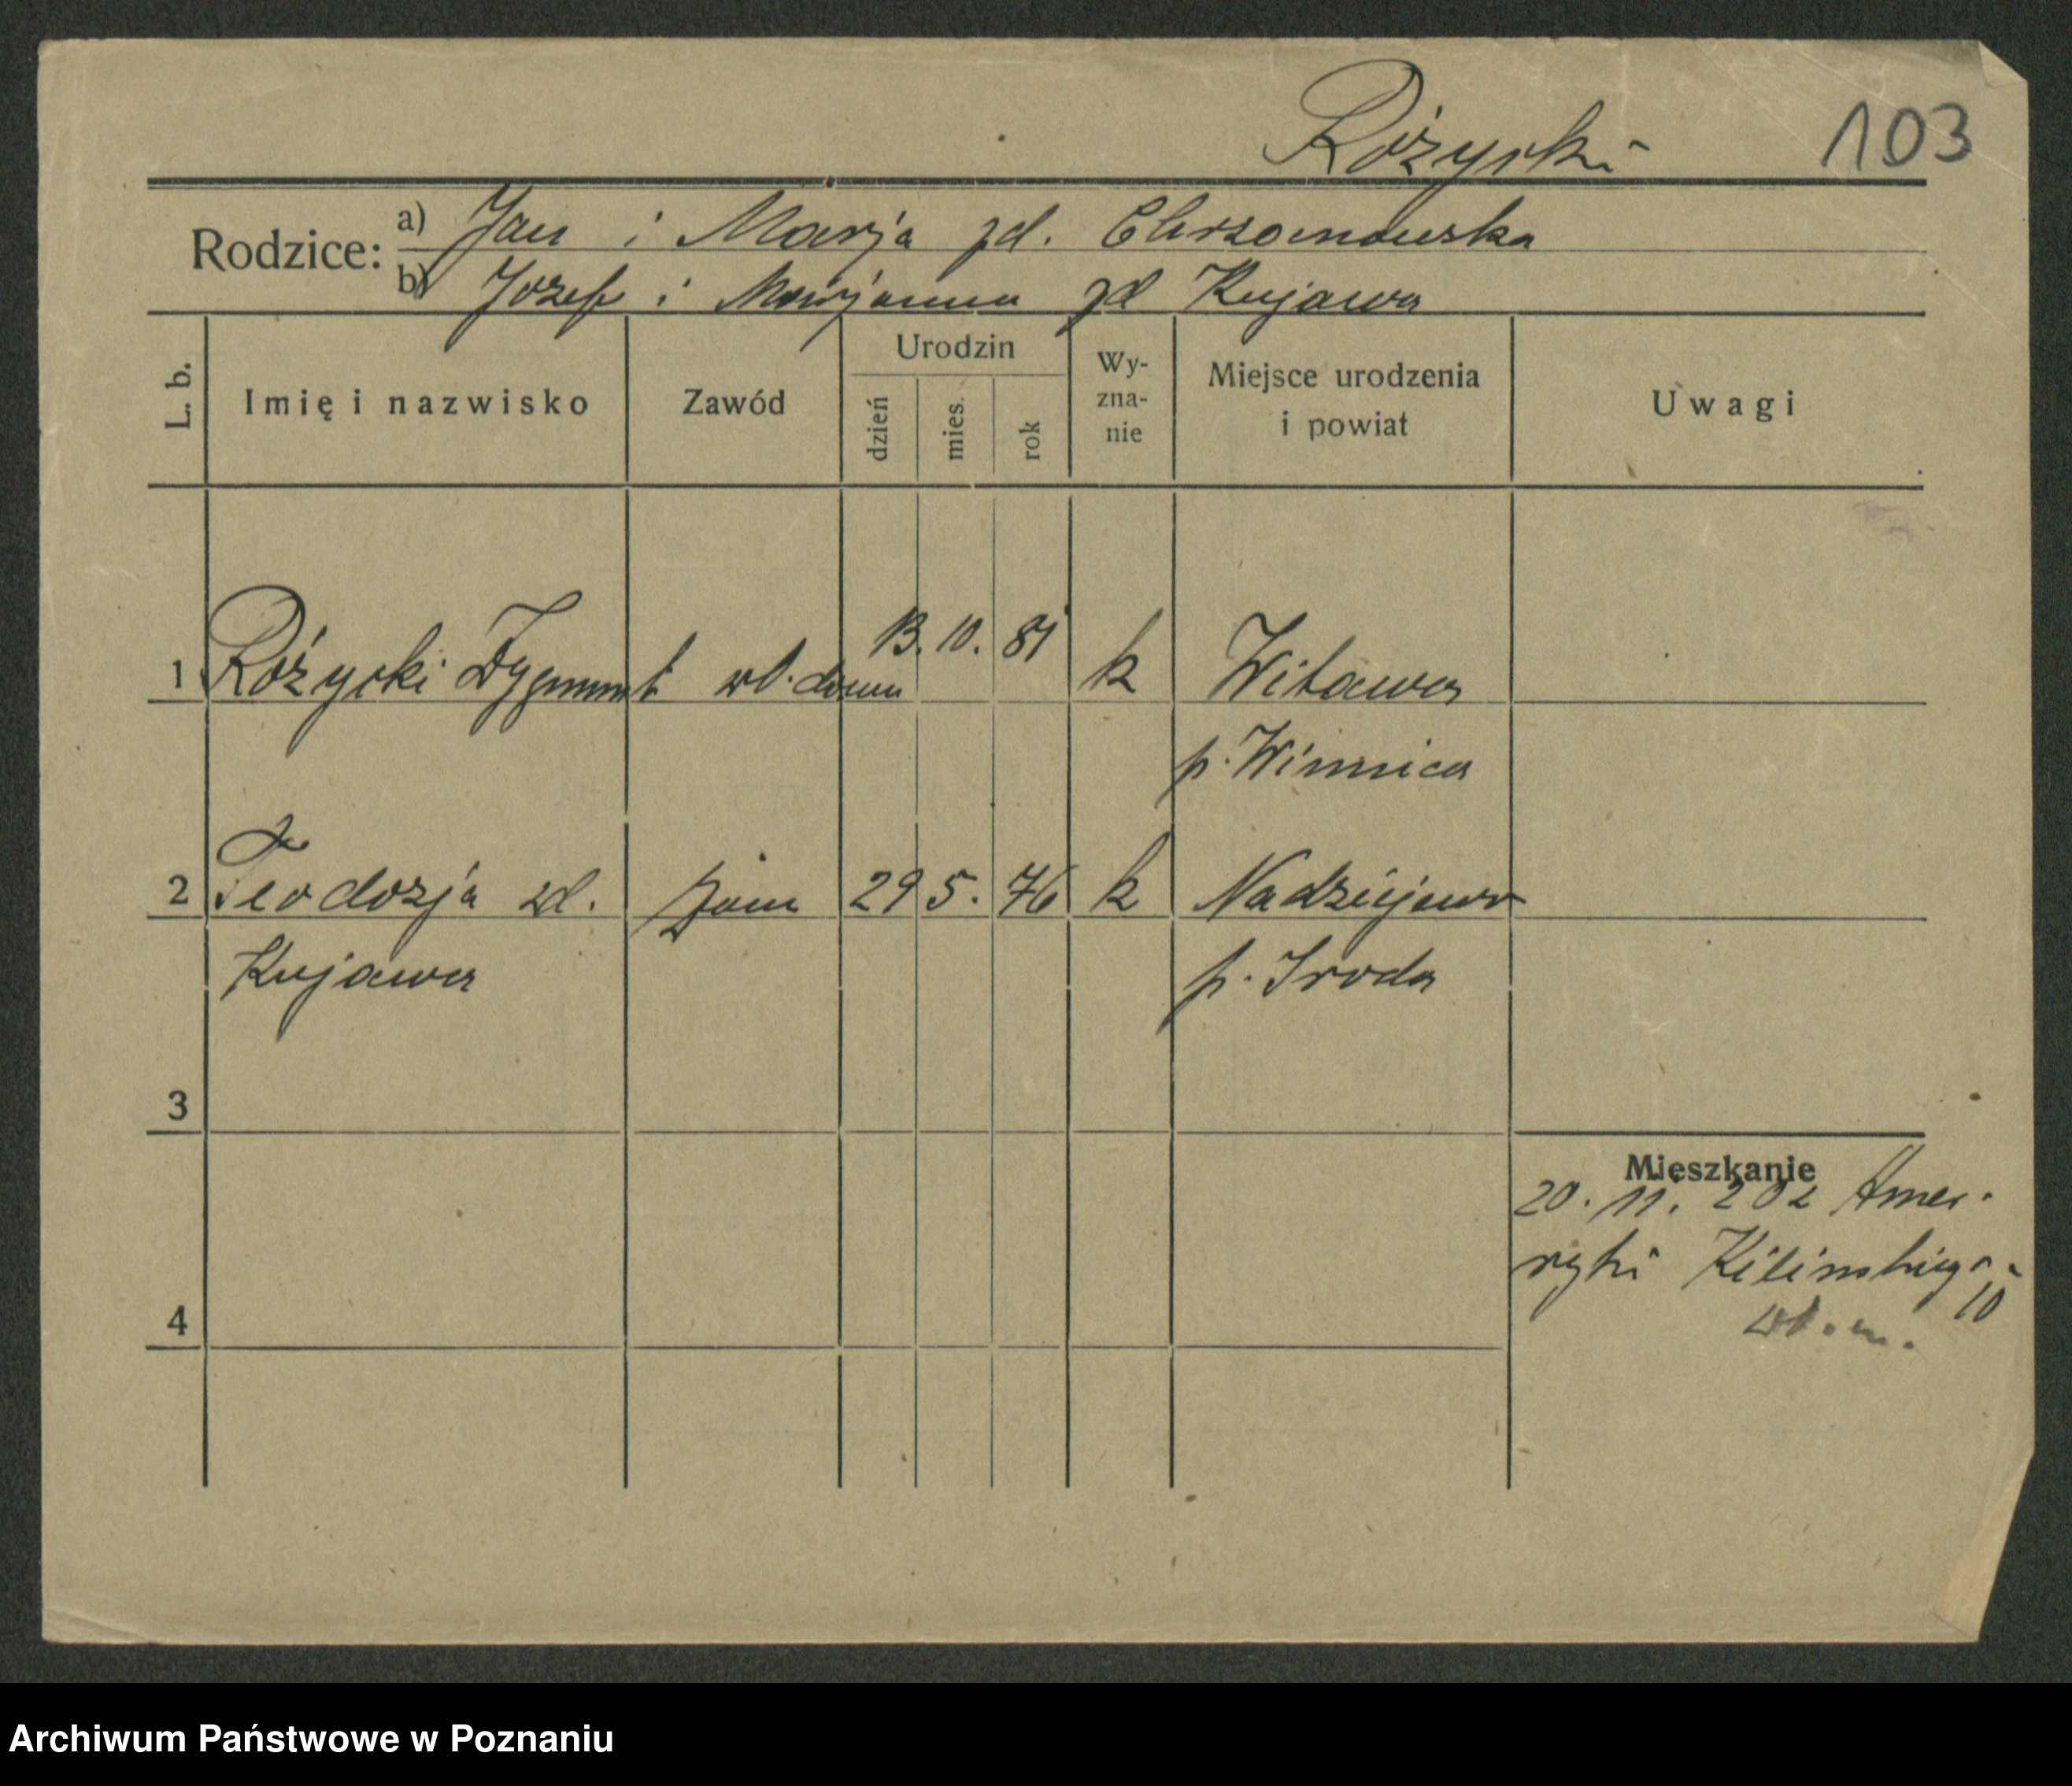 Różycki 103
Rodzice: a) Jan i Marja zd. Chrzanowska
b) Józef i Marjanna zd Kujawa
L. b. Imię i nazwisko Zawód Urodzin dzień mies. rok Wy-zna-nie Miejsce urodzenia i powiat Uwagi
1 Różycki Zygmunt wł. domu 13. 10. 81 k Witawa
p. Winnica
2 Teodozja zd. żona 29 5. 76 k Nadziejewo
Kujawa p. Sroda
3
Mieszkanie
20. 11. 20 z Ame-
ryki Kilinskiego
10
4 wł. m.
Archiwum Państwowe w Poznaniu